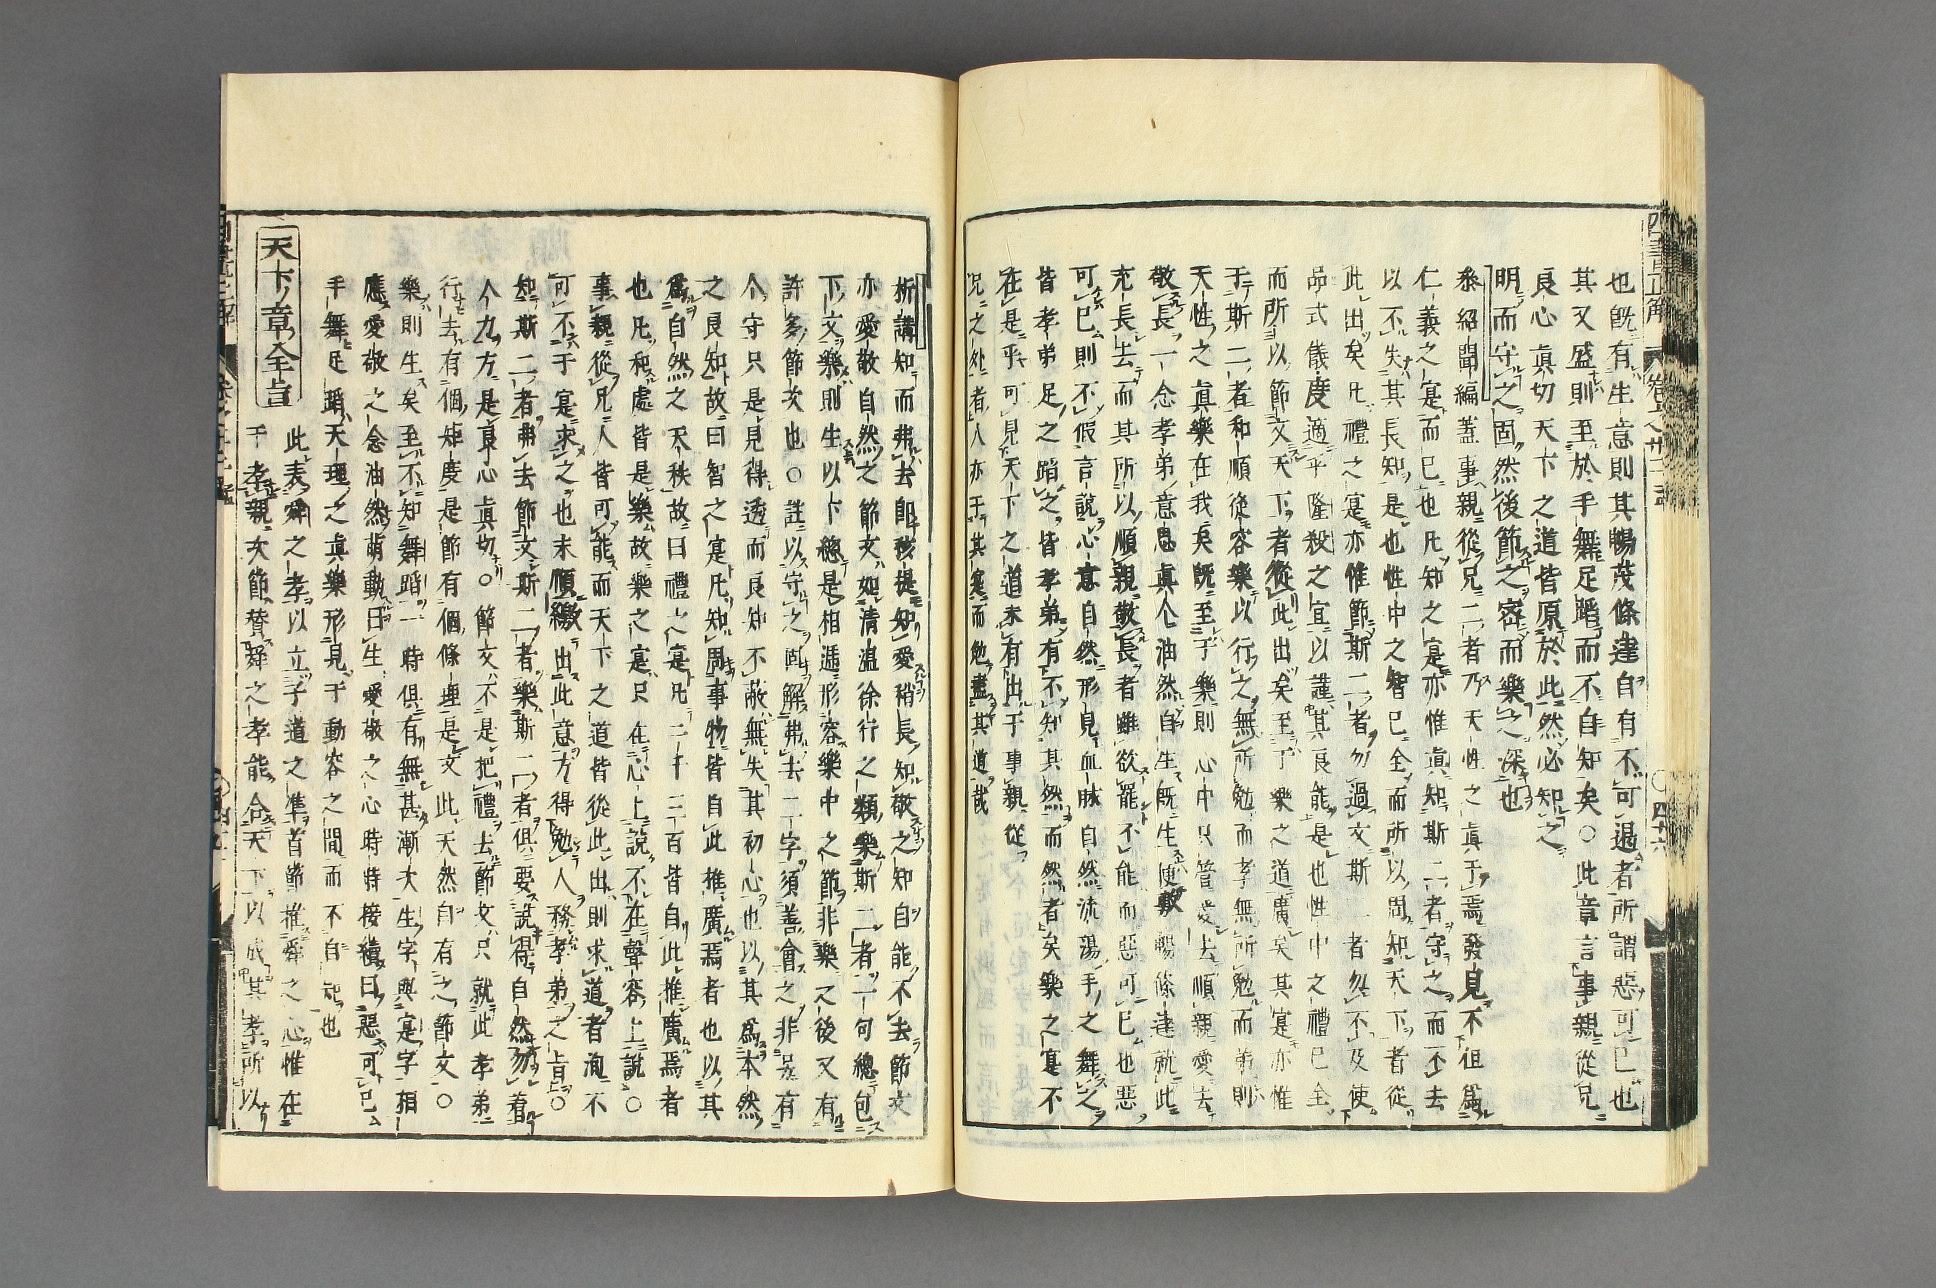 也既有生意則其暢茂條達自有不可遏者所謂惡可已也
其又盛則至於手舞足蹈而不自知矣○此章言事親從兄
良心眞切天下之道皆原於此然必知之
明而守之固然後節之密而樂之深也
參紹聞編蓋事親從兄二者乃天性之眞于焉發見不徂爲
仁義之寔而已也凡知之寔亦惟眞知斯二者守之而不去
以不失其良知是也性中之智已全而所以周知天下者從
此出矣凡禮之寔亦惟節斯二者勿過文斯二者勿不及使
品式儀度適乎隆殺之宜以謹其良能是也性中之禮已全
而所以節文天下者從此出矣至于樂之道廣矣其寔亦惟
于斯二者和順從容樂以行之無所勉而孝無所勉而弟則
天性之眞樂在我矣既至于樂則心中只管愛去順親愛去
敬長一念孝弟意思眞个油然自生既生便敷暢條達就此
充長去而其所以順親敬長者雖欲罷不能而惡可已也惡
可已則不假言說心意自然形見血脉自然流湯手之舞之
皆孝弟足之蹈之皆孝弟有不知其然而然者矣樂之寔不
在是乎可見天下之道未有出于事親從
兄之外者人亦于其寔而勉盡其道哉
析講知而弗去卽孩提知愛稍長知敬之知自能不去節文
亦愛敬自然之節文如清溫徐行之類樂斯二者一句總包
下文樂則生以下總是相遞形容樂中之節非樂之後又有
許多節次也○註以守之固解弗去二字須善會之非另有
个守只是見得透而良知不蔽無失其初心也以其爲本然
之良知故曰智之寔凡知周事物皆自此推廣焉者也以其
爲自然之天秩故曰禮之寔凡三千三百皆自此推廣焉者
也凡和處皆是樂故樂之寔只在心上說不在聲容上說○
事親從兄人皆可能而天下之道皆從此出則求道者洵不
可不于寔求之也末順繳出此意方得勉人務孝弟之旨○
知斯二者弗去節文斯二者樂斯二者俱要說得自然勿着
人力方是良心眞切○節文不是把禮去節文只就此孝弟
行去有個矩度是節有個條理是文此天然自有之節文○
樂則生矣至不知舞蹈一時俱有無甚漸次生字與寔字相
應愛敬之念油然萌動曰生愛敬之心時時接續曰惡可已
手舞足蹈天理之眞樂形見于動容之間而不自知也
天下章全旨
此表舜之孝以立子道之準首節推舜之心惟在
于孝親次節贊舜之孝能合天下以成其孝所以
四書正解
卷之廿二 孟
四十六